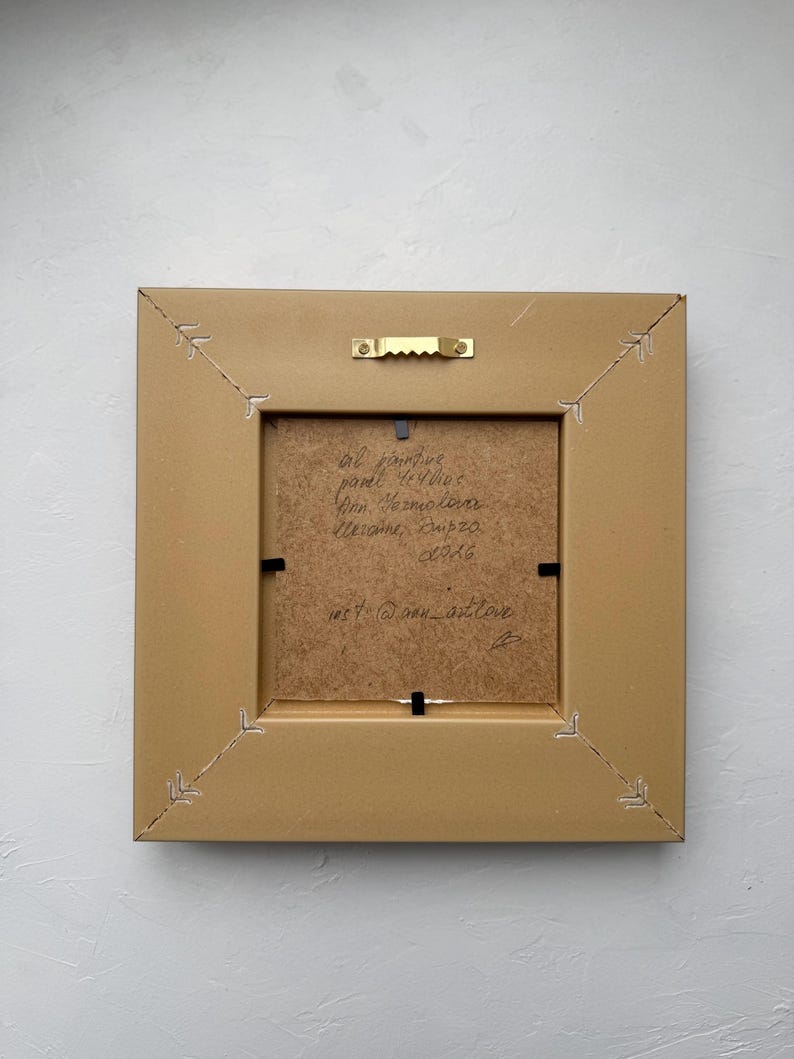 oil painting
panel 4×4 inc
Ann Yermolova
Ukraine, Dnipro.
2026
inst: @ann_artilove